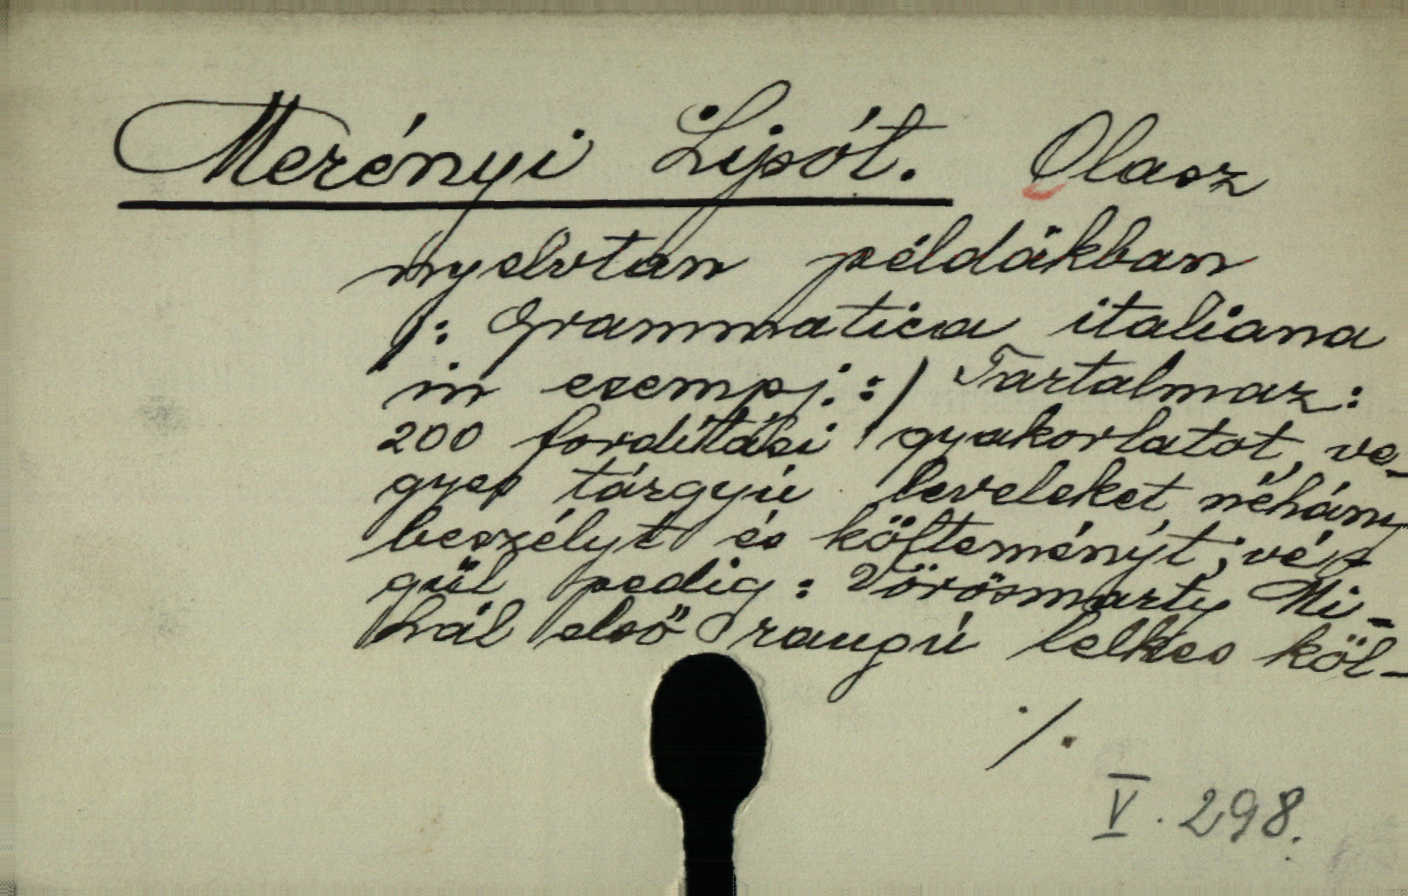 Merényi Lipót. Olasz
nyelvtan példákban
/: Grammatica italiana
in esempj. :/ Tartalmaz:
200 fordítási gyakorlatot, ve-
gyes tárgyú leveleket néhány
beszélyt és költeményt; vég
gül pedig: Vörösmarty Mi-
hál első rangú lelkes köl-
./.
V. 298.